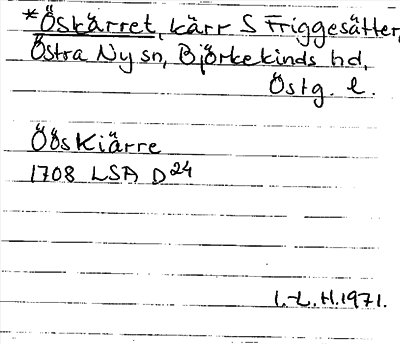 *Öskärret, kärr S Friggesätter,
Östra Ny sn, Björkekinds hd,
Östg. l.
ÖösKiärre
1708 LSA D24
I.-L.H.1971.